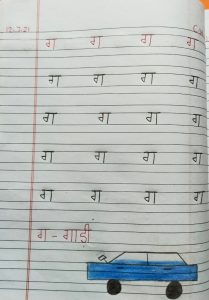 ग ग ग ग
ग ग ग ग
ग ग ग ग
ग ग ग ग
ग ग ग ग
ग - गाड़ी